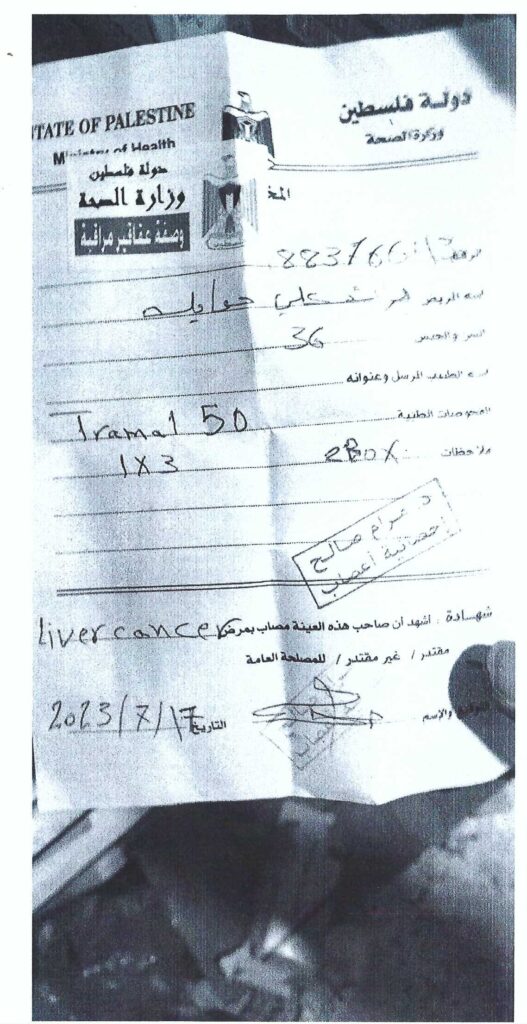 دولة فلسطين
وزارة الصحة
STATE OF PALESTINE
Ministry of Health
دولة فلسطين
وزارة الصحة
وصفة عقاقير مراقبة
اسم المريض
العمر والجنس 36
اسم الطبيب المرسل وعنوانه
الفحوصات الطبية Tramal 50
ملاحظات 2BOX 1X3
د. مرام صالح
أخصائية أعصاب
شهادة : أشهد أن صاحب هذه العينة مصاب بمرض Liver cancer
مقتدر / غير مقتدر / للمصلحة العامة
التوقيع والإسم
التاريخ 2023/7/17